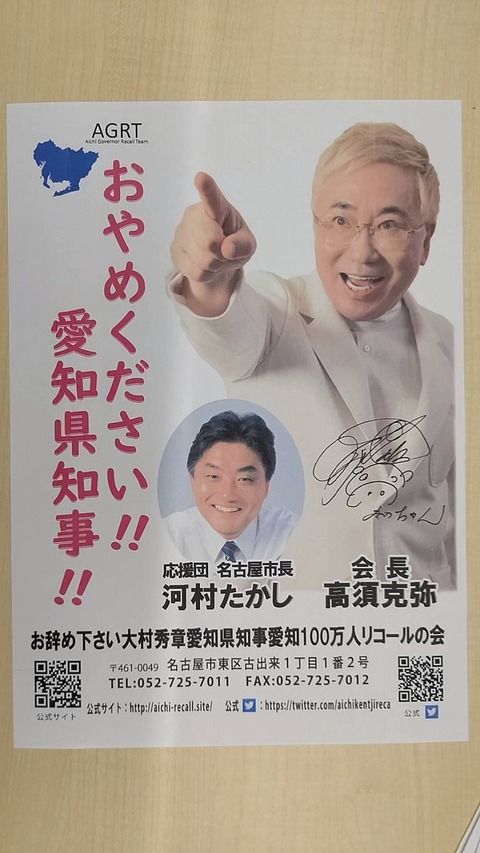 AGRT
Aichi Governor Recall Team
おやめください!!
愛知県知事!!
かっちゃん
応援団 名古屋市長
河村たかし
会長
高須克弥
お辞め下さい大村秀章愛知県知事愛知100万人リコールの会
〒461-0049 名古屋市東区古出来1丁目1番2号
TEL:052-725-7011 FAX:052-725-7012
公式サイト:http://aichi-recall.site/ 公式 :https://twitter.com/aichikentjireca
公式サイト
公式